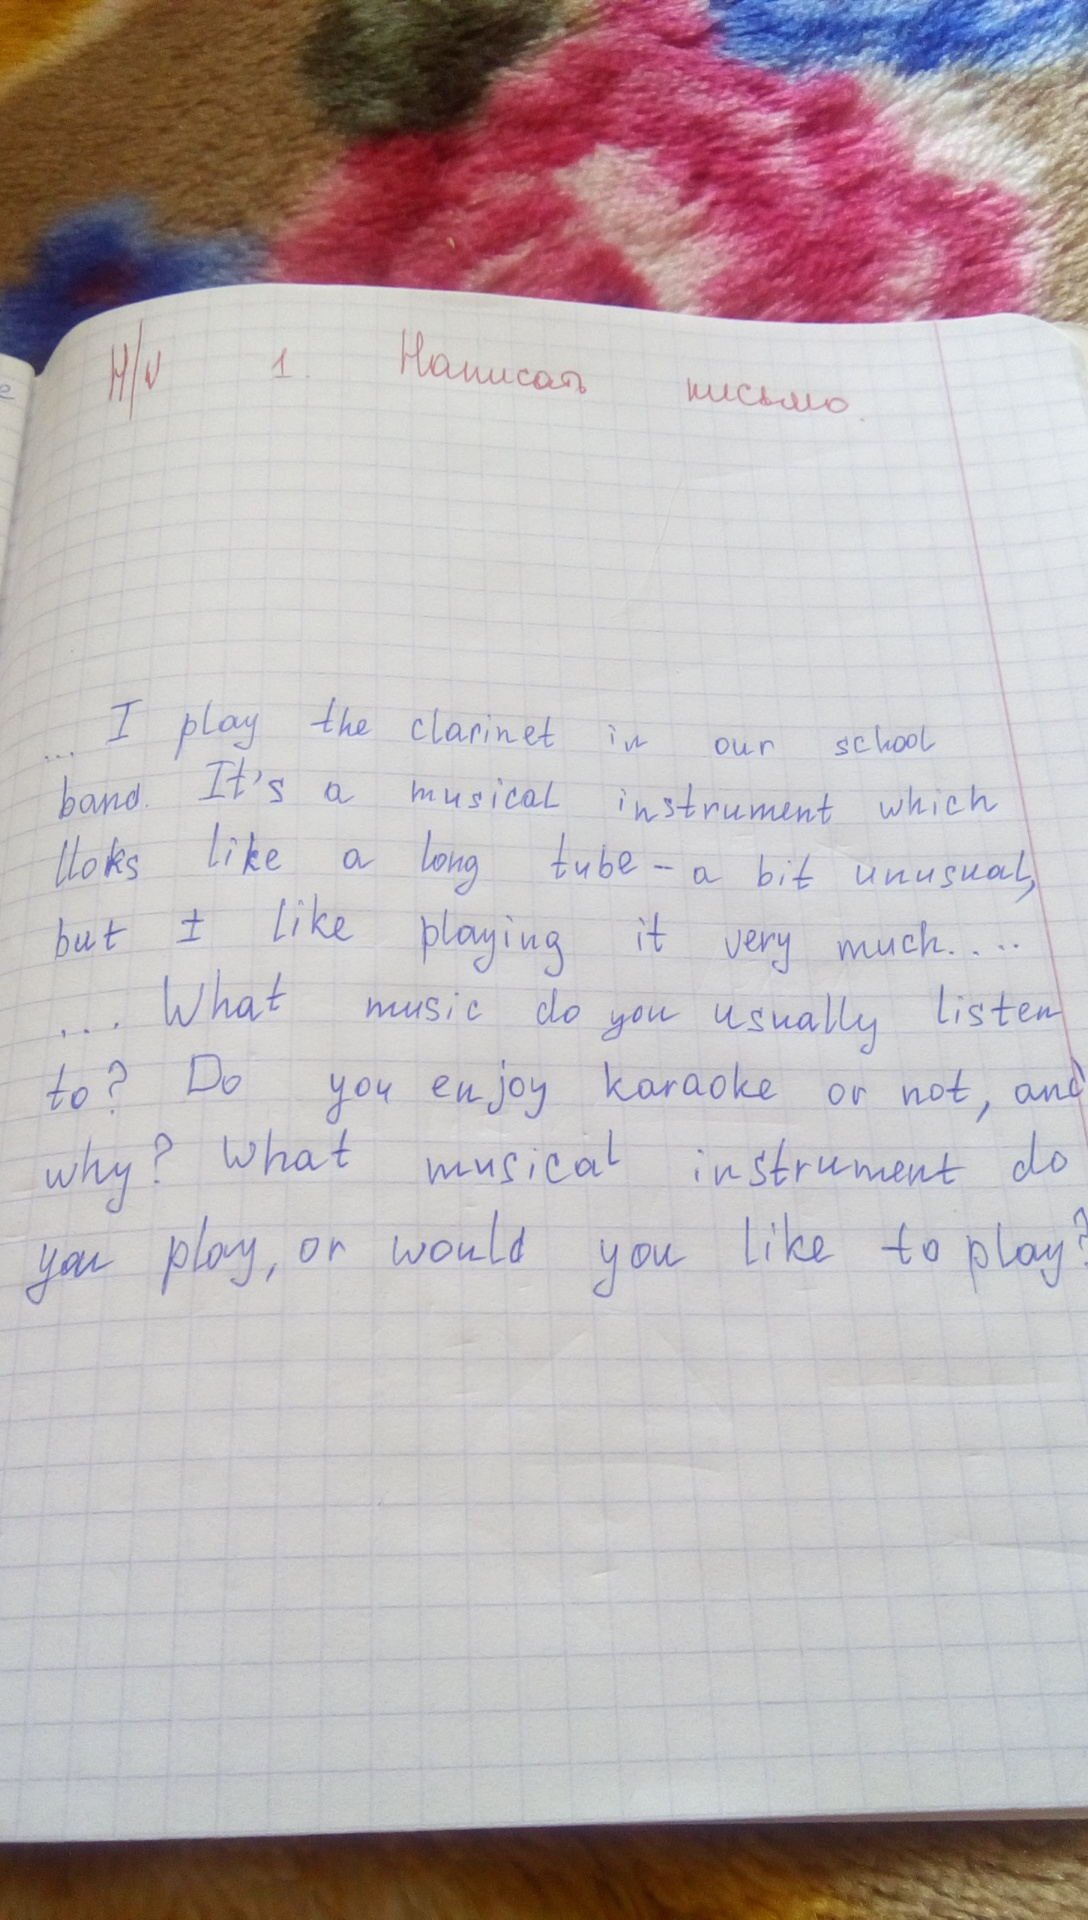 H/W 1. Написать письмо.
... I play the clarinet in our school
band. It's a musical instrument which
lloks like a long tube - a bit unusual,
but I like playing it very much....
... What music do you usually listen
to? Do you enjoy karaoke or not, and
why? What musical instrument do
you play, or would you like to play?